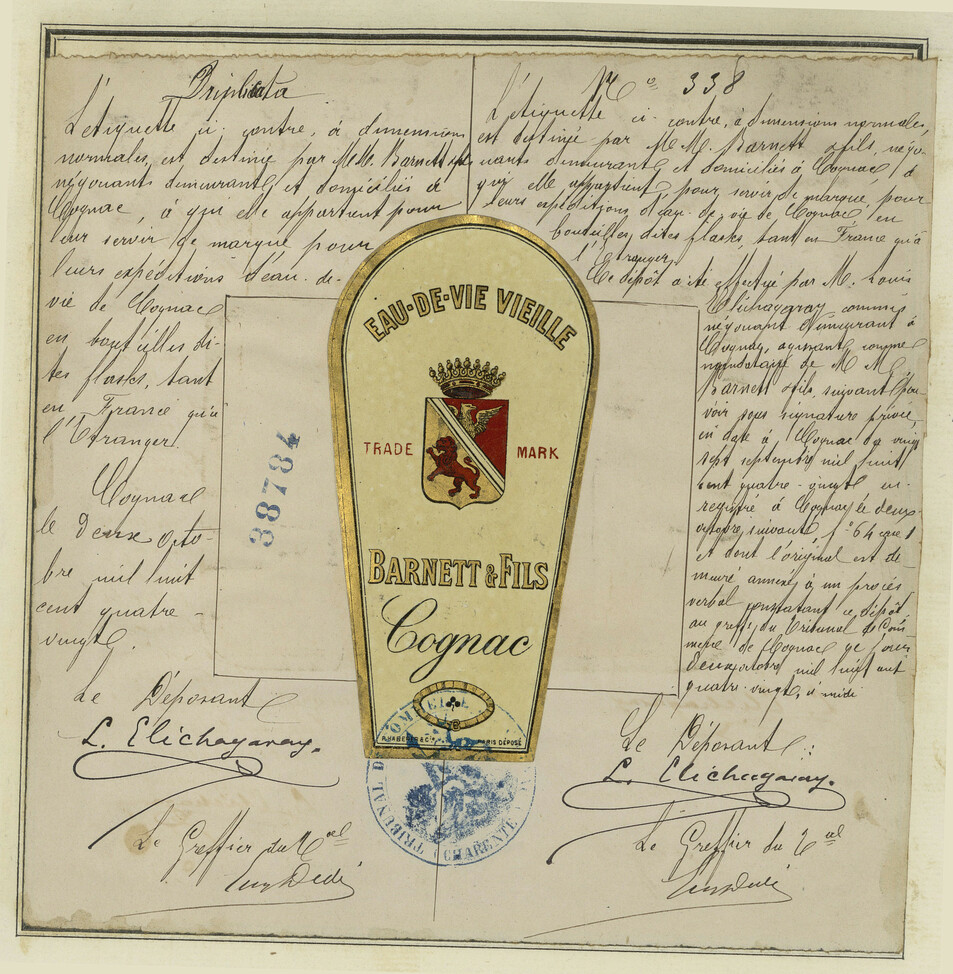 Triplicata
L'étiquette ci-contre, à dimensions
normales, est destinée par M.M. Barnett & fils
négociants demeurant et domiciliés à
Cognac, à qui elle appartient pour
leur servir de marque pour
leurs expéditions d'eau-de-
vie de Cognac
en bouteilles di-
tes flasks, tant
en France qu'à
l'Etranger.
Cognac
le deux octo-
bre mil huit
cent quatre-
vingt.
Le Déposant
L. Elichagaray.
Le Greffier du Tal
No 338
L'étiquette ci-contre, à dimensions normales,
est destinée par M.M. Barnett & fils, négo-
ciants demeurant et domiciliés à Cognac, à
qui elle appartient, pour servir de marque, pour
leurs expéditions d'eau-de-vie de Cognac, en
bouteilles, dites flasks, tant en France qu'à
l'Etranger.
Ce dépôt a été effectué par M. Louis
Elichagaray commis
négociant demeurant à
Cognac, agissant comme
mandataire de M.M.
Barnett & fils, suivant pou-
voir sous signature privée,
en date à Cognac du vingt
sept septembre mil huit
cent quatre-vingt en-
registré à Cognac le deux
octobre suivant, fo 64
et dont l'original est de-
meuré annexé à un procès
verbal constatant ce dépôt
au greffe du Tribunal de Com-
merce de Cognac ce jour
deux octobre mil huit cent
quatre-vingt, à midi
Le Déposant:
L. Elichagaray.
Le Greffier du Tal
EAU-DE-VIE VIEILLE
TRADE MARK
BARNETT & FILS
Cognac
PARIS DÉPOSÉ
38784
TRIBUNAL DE COMMERCE
CHARENTE